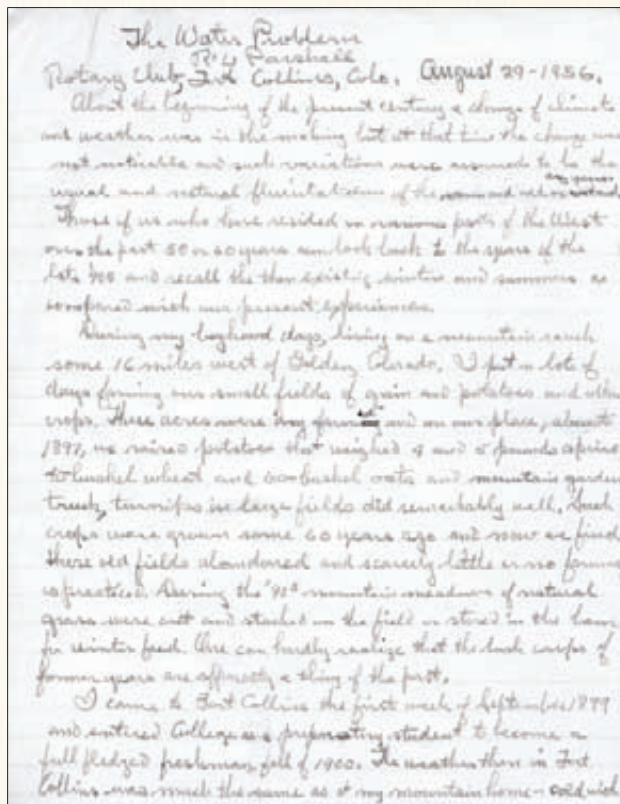 The Water Problem
R. L. Parshall
Rotary Club, Fort Collins, Colo. August 29-1956.
About the beginning of the present century a change of climate
and weather was in the making but at that time the change was
not noticable and such variations were assumed to be the
usual and natural of the and
Those of us who have resided in various parts of the West
over the past 50 or 60 years can look back to the years of the
late and recall the then existing winters and summers as
compared with our present experiences.
During my boyhood days, living on a mountain ranch
some 16 miles west of Golden, Colorado. I put in lots of
days farming our small fields of grain and potatoes and other
crops. These acres were dry and on our place, about
1897, we raised potatoes that weighed 4 and 5 pounds apiece
bushel wheat and bushel oats and mountain garden
truck, turnips in large fields did remarkably well. Such
crops were grown some 60 years ago and now we find
these old fields abandoned and scarcely little or no farming
is practiced. During the mountain meadows of natural
grass were cut and stacked in the field or stored in the barn
for winter feed. One can hardly realize that the lush crops of
former years are a thing of the past.
I came to Fort Collins the first week of September 1899
and entered College as a student to become a
full fledged freshman, fall of 1900. The weather then in Fort
Collins was much the same as at my mountain home - cold